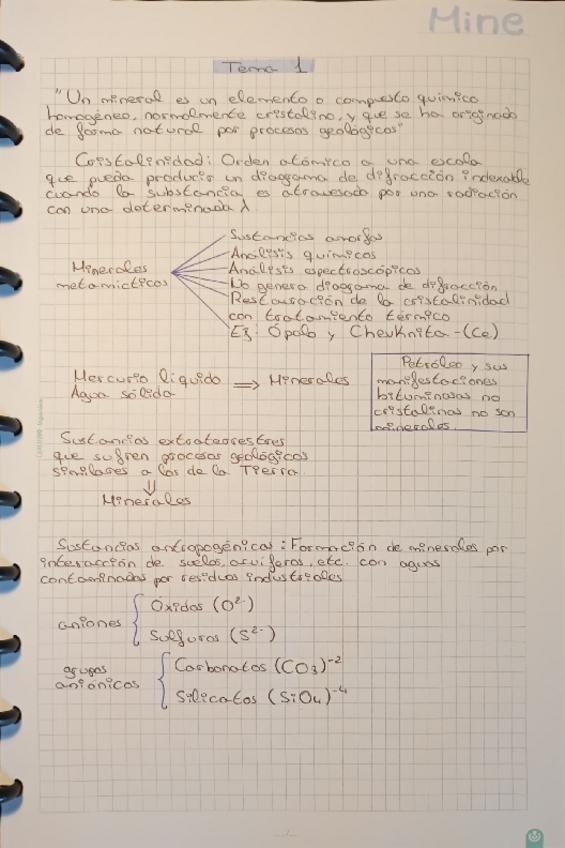 Mine
Tema 1
"Un mineral es un elemento o compuesto químico
homogéneo, normalmente cristalino, y que se ha originado
de forma natural por procesos geológicos"
Cristalinidad: Orden atómico a una escala
que pueda producir un diagrama de difracción indexable
cuando la substancia es atravesada por una radiación
con una determinada λ.
Minerales
metamícticos
Sustancias amorfas
Análisis químicos
Análisis espectroscópicos
No genera diagrama de difracción
Restauración de la cristalinidad
con tratamiento térmico
Ej: Ópalo y Chevknita-(Ce)
Mercurio líquido ⇒ Minerales
Agua sólida
Petróleo y sus
manifestaciones
bituminosas no
cristalinas no son
minerales.
Sustancias extraterrestres
que sufren procesos geológicos
similares a los de la Tierra.
⇓
Minerales
Sustancias antropogénicas: Formación de minerales por
interacción de suelos, acuíferos, etc. con aguas
contaminadas por residuos industriales
aniones { Óxidos (O²⁻)
Sulfuros (S²⁻)
grupos
aniónicos { Carbonatos (CO₃)⁻²
Silicatos (SiO₄)⁻⁴